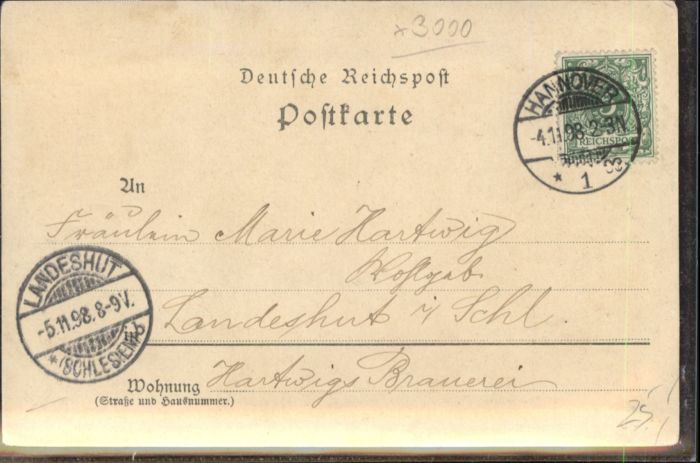 *3000
Deutsche Reichspost
Postkarte
HANNOVER
-4.11.98.2-3N.
REICHSPO
* 1
An
Fräulein Marie Hartwig
Wohlgeb
Landeshut i/ Schl.
LANDESHUT
-5.11.98.8-9V.
*(SCHLESIEN)b
Wohnung
(Straße und Hausnummer.)
Hartwigs Brauerei
25.